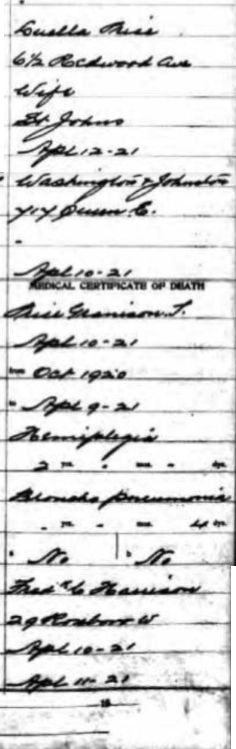 Luella Rice
6½ Redwood Ave
Wife
St Johns
Apl 12-21
Washington & Johnston
717 Queen E.
-
Apl 10-21
MEDICAL CERTIFICATE OF DEATH
Rice Granison T.
Apl 10-21
from Oct 1920
to Apl 9-21
Hemiplegia
2 yrs. - mos. - dys.
Broncho pneumonia
- yrs. - mos. 4 dys.
a No b No
Fred Harrison
29 Roxboro W
Apl 10-21
Apl 11-21
19